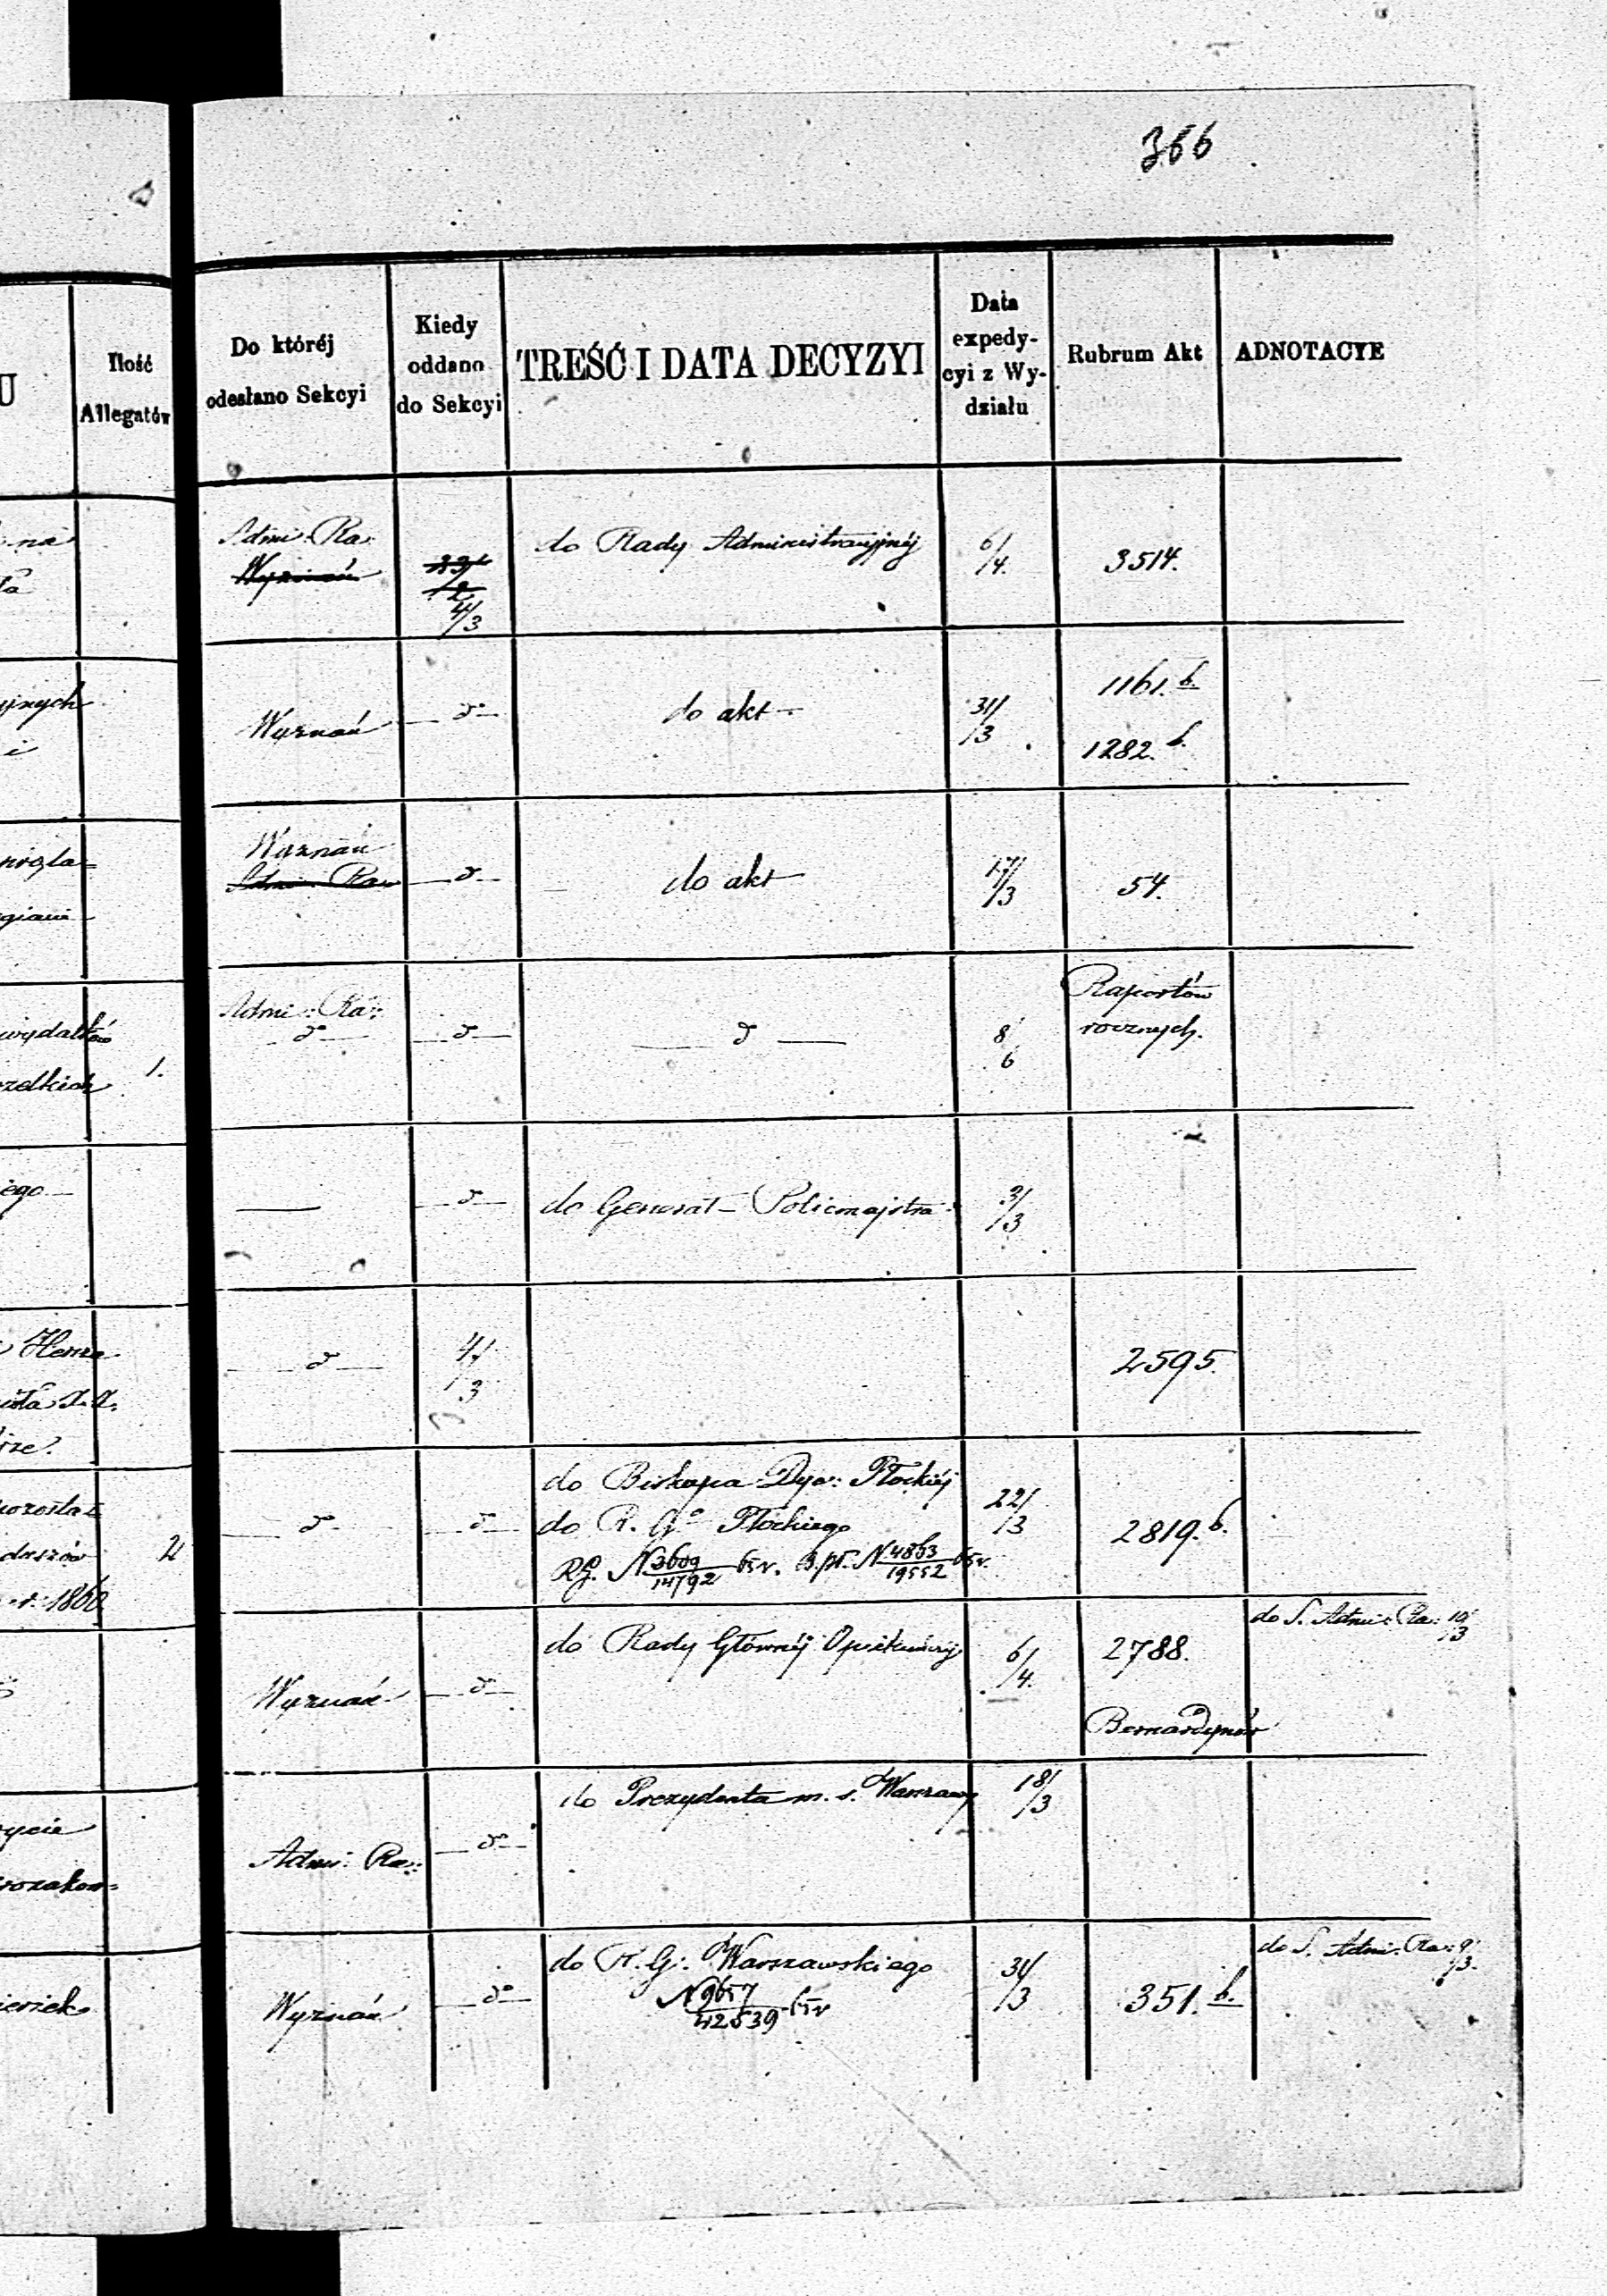 366
U
Ilość
Allegatów
Do któréj
odesłano Sekcyi
Kiedy
oddano
do Sekcyi
TREŚĆ I DATA DECYZYI
Data
expedy-
cyi z Wy-
działu
Rubrum Akt
ADNOTACYE
na
Admi: Ra:
Wyznań
23/2
4/3
do Rady Administracyjnéj
6/4.
3514.
yjnych
i
Wyznań
— d° —
do akt —
31/3
1161. b.
1282. b.
giani
Wyznań
Admi: Ra:
— d° —
do akt
17/3
54.
wydatków
zelkich
1.
Admi: Ra:
— d° —
— d° —
— d° —
8/6
Raportów
rocznych.
ego —
—
— d° —
do Generał – Policmajstra
3/3
ze.
— d° —
4/3
2595.
pozosta=
duszów
r. 1860
2
— d° —
— d° —
do Biskupa Dye: Płockiéj
do R. G° Płockiego
RG. N 3609/14792 65 r. B. pł. N 4863/19552 65 r.
22/3
2819. b.
Wyznań
— d° —
do Rady Głównéj Opiekuńczéj
6/4.
2788.
Bernardynów
do S. Admi: Ra: 10/3
ycie
rozakon=
Admi: Ra:
— d° —
do Prezydenta m. s. Warszawy
18/3
Wyznań
— d° —
do R. G. Warszawskiego
N 9657/42539 65 r
31/3
351. b.
do S. Admi: Ra: 9/3.